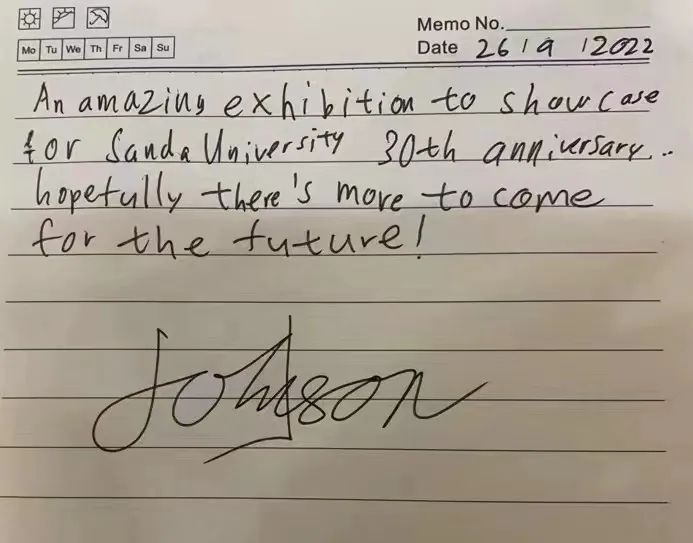 Memo No.
Mo Tu We Th Fr Sa Su
Date 26/9/2022
An amazing exhibition to showcase
for Sanda University 30th anniversary..
hopefully there's more to come
for the future!
Johnson